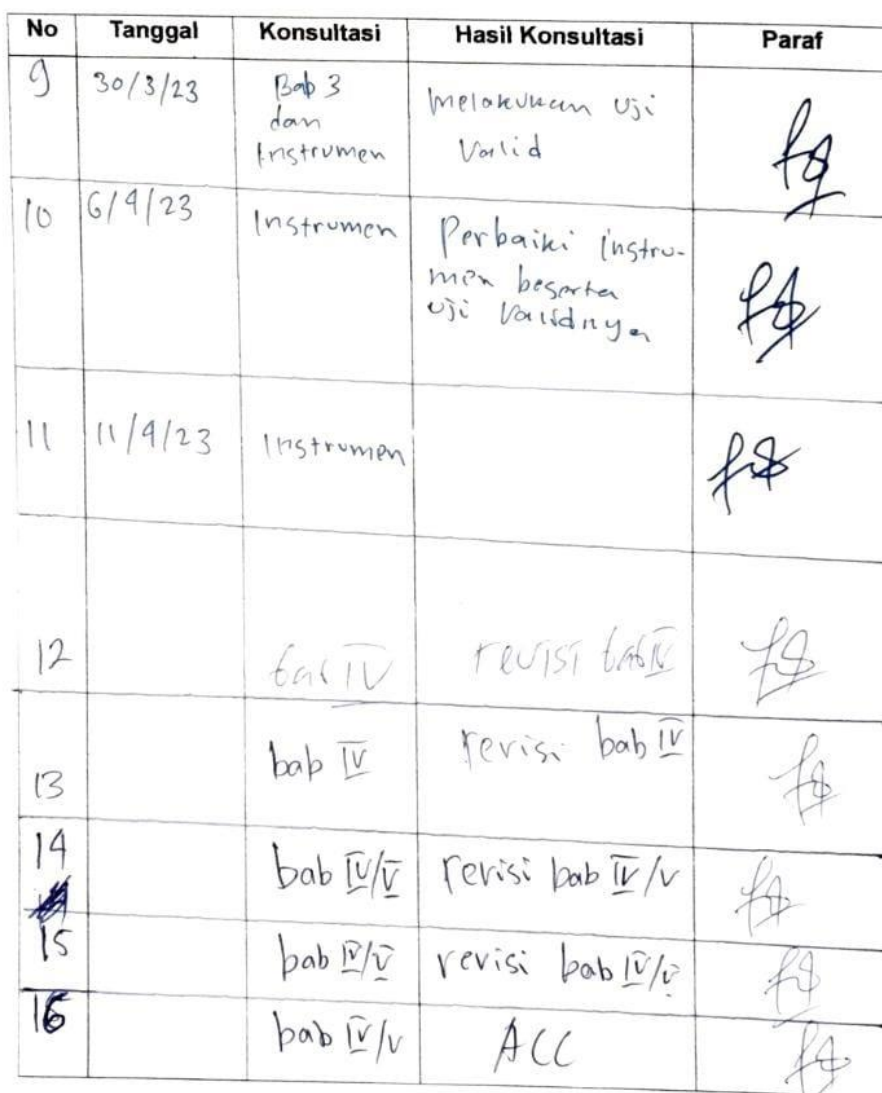 No Tanggal Konsultasi Hasil Konsultasi Paraf
9 30/3/23 Bab 3 melakukan Uji
dan Valid
Instrumen
10 6/4/23 Instrumen Perbaiki instru-
men beserta
uji validnya
11 11/4/23 Instrumen
12 bab IV revisi bab IV
13 bab IV revisi bab IV
14 bab IV/V revisi bab IV/V
15 bab IV/V revisi bab IV/V
16 bab IV/V ACC